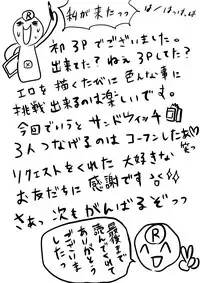 私が来たっっ
は/はっは。
R
初3Pでございました。
出来てた?ねぇ3Pしてた?
エロを描くたびに色んな事に
挑戦出来るのは楽しいです。
今回でいうとサンドウィッチ
3人つなげるのはコーフンしたあ
笑っ
リクエストをくれた大好きな
お友だちに感謝です
さあっ次もがんばるぞっっ
最後まで
読んでくれて
ありがとう
ございま
したっ
R